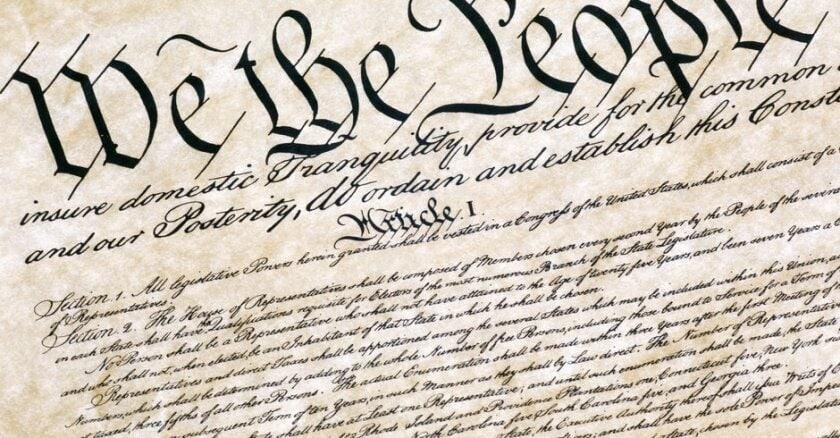 We the People
insure domestic Tranquility, provide for the common
and our Posterity, do ordain and establish this Const
Article. I.
Section. 1. All legislative Powers herein granted shall be vested in a Congress of the United States, which shall consist of a
of Representatives.
Section. 2. The House of Representatives shall be composed of Members chosen every second Year by the People of the several
in each State shall have the Qualifications requisite for Electors of the most numerous Branch of the State Legislature.
No Person shall be a Representative who shall not have attained to the Age of twenty five Years, and been seven Years a
and who shall not, when elected, be an Inhabitant of that State in which he shall be chosen.
Representatives and direct Taxes shall be apportioned among the several States which may be included within this Union,
Numbers, which shall be determined by adding to the whole Number of free Persons, including those bound to Service for a Term of
not taxed, three fifths of all other Persons. The actual Enumeration shall be made within three Years after the first Meeting of
subsequent Term of ten Years, in such Manner as they shall by Law direct. The Number of Representatives
shall have at least one Representative; and until such enumeration shall be made, the State
Rhode Island and Providence Plantations one, Connecticut five, New York
North Carolina five, South Carolina five, and Georgia three.
State, the Executive Authority thereof shall issue Writs of
shall have the sole Power of Imp
State, chosen by the Legisla